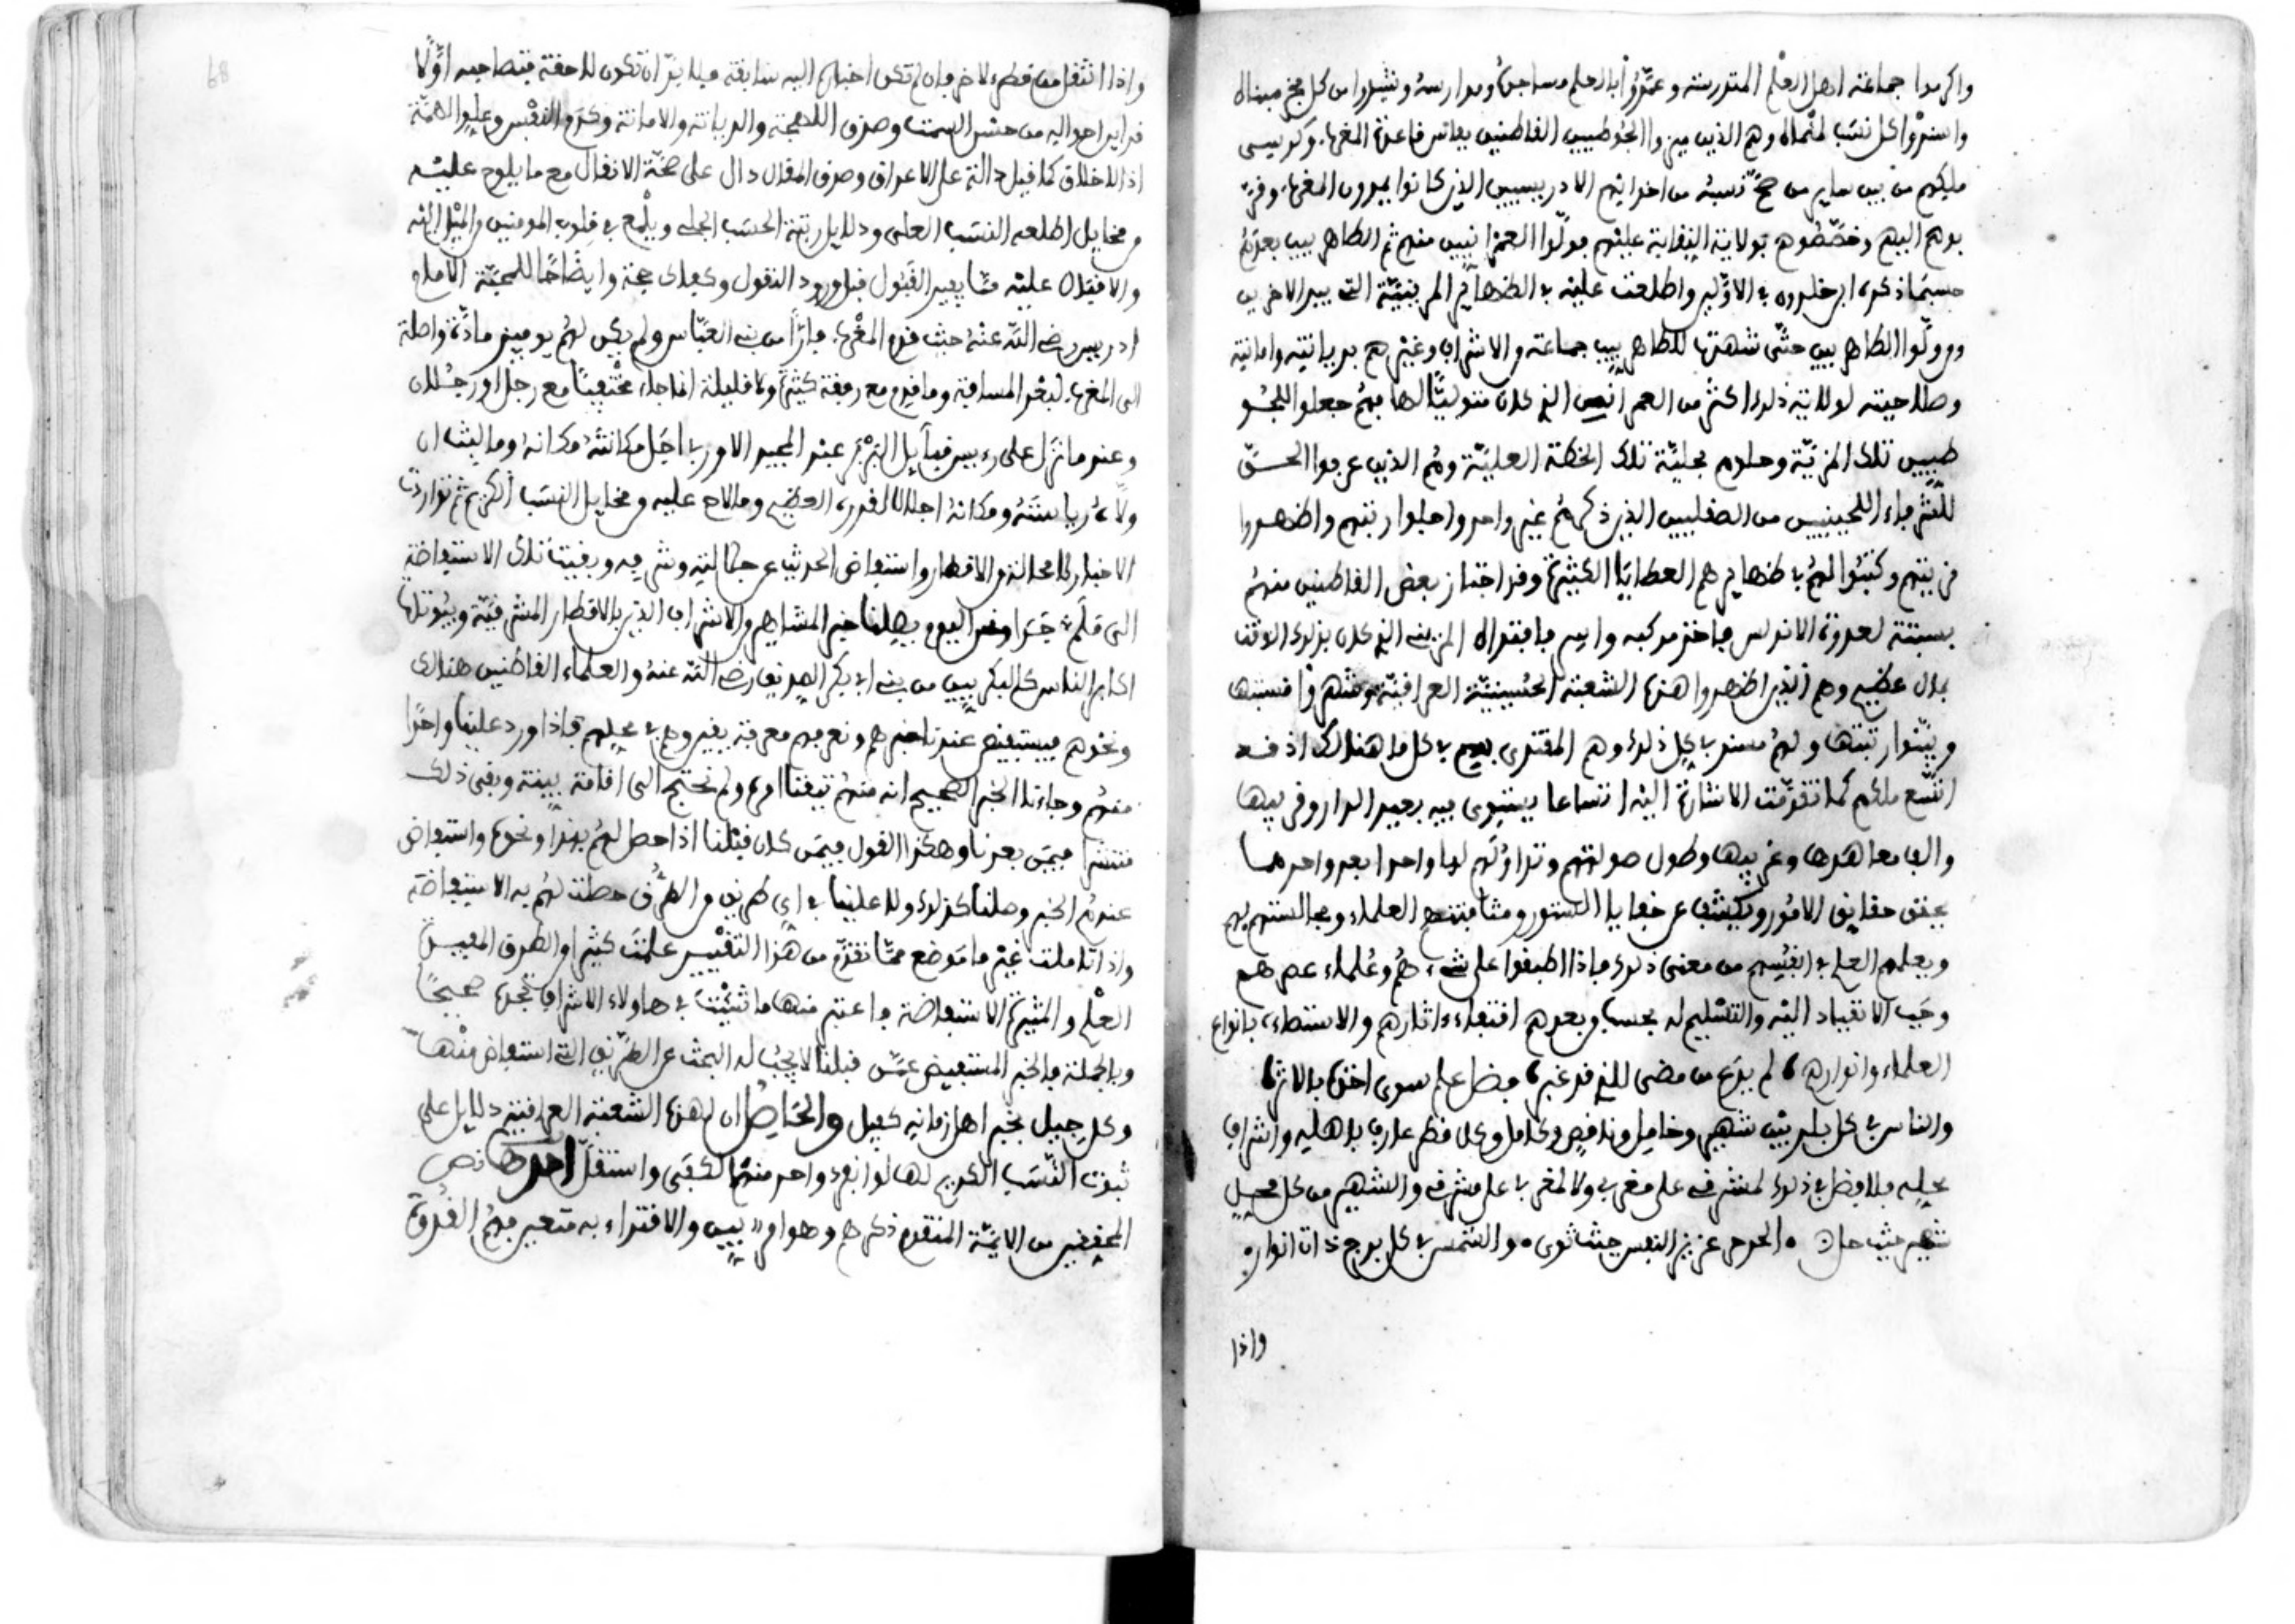 واكرموا جماعته اهل العلم المتدرسة وعمّروا بالعلم مساجده ومدارسه وشيدوا من كل مجد مبناه
واسنوا كل نسب لمنماه وهم الذين ميزوا الجوطيين القاطنين بفاس قاعدة المغرب وكرسى
ملكهم من بين سائر من صحّ نسبه من اخوانهم الادريسيين الذين كانوا يردون المغرب وفرّ
بوهم اليهم وخصّصوهم بولاية النقابة عليهم فولّوا العمرانيين منهم ثم الطاهريين بعدهم
حسبما ذكره ابن خلدون في الاولين واطلعت عليه في الظهائر المرينيّة التي بيد الاخرين
وولّوا الطاهريين حتّى شهدت للطاهريين جماعة من الاشراف وغيرهم بديانته وامانته
وصلاحيته لولاية ذلك اكثر من العمراني الذي كان متوليًا لها منهم جعلوا للجو
طيين تلك المزيّة وحلوهم بحلية تلك الخطة العليّة وهم الذين عرفوا الحسنى
للشرفاء اللحيينيين من الصقليين الذين ذكرهم غير واحد واجلوا رتبتهم واظهروا
مزيتهم وكتبوا لهم في ظهائرهم العطايا الكثيرة وقد اجتاز بعض القاطنين منهم
بسبتة لعدوة الاندلس فاخذ مركبه واسر فافتداه المريني الذي كان بذلك الوقت
بمال عظيم وهم الذين اظهروا هذه الشعبة الحسينيّة العراقيّة وشهروا نسبتها
وبيّنوا رتبتها ولهم مستند في كل ذلك وهم المقتدى بهم في كل ما هنالك اذ قد
اتّسع ملكهم كما تقدّمت الاشارة اليه اتساعا يستوى فيه بعيد الدار وقريبها
والف معاهدها وغريبها وطول صولتهم وتداولهم لها واحدا بعد واحد مما
يحقق حقايق الامور ويكشف عن خفايا الستور ومشافهتهم العلماء ومجالستهم لهم
وبعلمهم العلم في انفسهم من معنى ذلك فاذا اطبقوا على شيء هم وعلماء عصرهم
وجب الانقياد اليه والتسليم له بحسب وبعدهم اقتفاء اثارهم والاستضاءة بانواع
العلماء وانوارهم، لم يدع من مضى للذي قد غبر، فضل علم سوى اخذه بالاثر،
والناس في كل بلد بين شهير وخامل وناقص وكامل وكل قطر عارف باهله واشراف
محله فلا فضل في ذلك لمشرفي على مغربي ولا لمغربي على مشرقي والشهير من كل محل
شهير حيث حل ه الحر حر عزيز النفس حيث ثوى ه والشمس في كل برج ذات انوار ه
واذا
واذا انتقل من قطر لاخر فان لم تكن اخباره اليه سابقة فلا بدّ ان تكون لاحقة فتصاحبه اوّلا
قراين احواله من حسن السمت وصدق اللهجة والديانة والامانة وكرم النفس وعلو الهمّة
اذ الاخلاق كما قيل دالة على الاعراق وصدق المقال دال على صحّة الانفال مع ما يلوح عليه
من مخايل اطلعه النسب العلى ودلايل رتبة الحسب الجلي ويلمع في قلوب المومنين والميل اليه
والاقبال عليه مما يفيد القبول قبل ورود النقول وكفاك حجة وايضاحًا للمحجّة الامام
ادريس رضي اللّه عنه حيث قدم المغرب فارًّا من بني العبّاس ولم يكن لهم يوميذ مادّة واصلة
الى المغرب لبعد المسافة وما قدم مع رفقة كثيرة ولا قليلة انما جاء مختفيًا مع رجل او رجلان
وعندما نزل على رءيس قبايل البربر عبد المجيد الاوربي اجل مكانته مكانه وما لبث ان
ولّاه رياسته ومكانه اجلالا لقدره العظيم وما لاح عليه من مخايل النسب الكريم ثم تواردت
الاخبار كما محالة من الاقطار واستفاض الحديث عن جلالته وشرفه وبقيت تلك الاستفاضة
الى هلمّ جرّا وفي اليوم يصلنا خبر المشاهير والاشراف الذين بالاقطار المشرقيّة وبيوتاتها
اكابر الناس كالبكريين من بني ابي بكر الصديق رضي اللّه عنه والعلماء القاطنين هنالك
ونحوهم فيستفيض عندنا خبرهم ونعرفهم معرفة يقين وهم في محلهم فاذا ورد علينا واحدًا
منهم وجاءنا الخبر الصحيح انه منهم تيقنا امره ولم نحتج الى اقامة بينة وبقى ذلك
منتشرا فيمن بعدنا وهكذا القول فيمن كان قبلنا اذا حصل لهم بهذا ونحوه واستفاض
عندهم الخبر وصلنا كذلك ولا علينا في اي طريق من الطرق حصلت لهم به الاستفاضة
واذا تاملت غير ما موضع ممّا تقدّم من هذا التقييد علمت كثيرا والطرق المفيدة
العلم والمثيرة الاستفاضة فاعتبر منها ما شيت في هاولاء الاشراف تجده صحيحًا
وبالجملة فالخبر المستفيض عمّن قبلنا لا يجب له البحث عن الطريق التي استفاض منها
وكل جيل بخبر اهل زمانه كفيل والحاصل ان لهذه الشعبة العراقية دلايل على
ثبوت النسب الكريم لها لو انفرد واحد منها لكفى واستقل احدها نص
المحققين من الايمّة المتقدم ذكرهم وهوامر ييس والاقتداء به متعين فهم القدوة